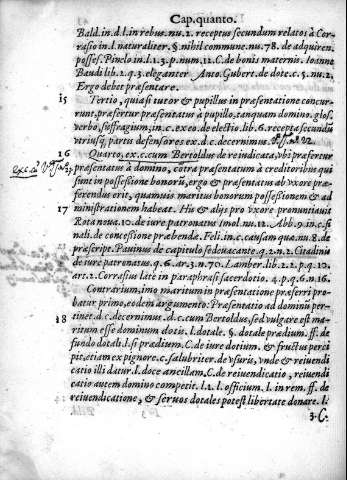 Cap.quanto.
Bald.in.d.l.in rebus.nu.2. receptus secundum relatos à Cor-
rasio in.l.naturaliter.§.nihil commune.nu.78. de adquiren.
posses.Pinelo in.l.1.3.p.num.12.C.de bonis maternis. Ioanne
Baudi lib.2.q.3.eleganter Anto.Gubert.de dote.c.5.nu.2,
Ergo debet præsentare.
15 Tertio, quia si tutor & pupillus in præsentatione concur-
runt, præfertur præsentatus à pupillo.tanquam domino.glos.
verbo,suffragium,in.c.ex eo.de electio.lib.6.recepta secundū
vtriusq; partis defensores ex.d.c.decernimus.
16 Quarto, ex.c.cum Bertoldus de re iudicata,vbi præfertur
præsentatus à domino, cōtra præsentatum à creditoribus qui
sunt in possessione bonorū,ergo & præsentatus ab vxore præ-
ferendus erit, quamuis maritus bonorum possessionem & ad
17 ministrationem habeat. His & alijs pro vxore pronuntiauit
Rota noua.10.de iure patronatus Imol.nu.12. Abb.9.in.c.fi
nali.de concessione præbendæ. Feli.in.c.causam quæ.nu.8.de
præscript.Pauinus de capitulo sede vacante.q.2.n.2.Citadinus
de iure patronatus.q.6.ar.3.n.70.Lamber.lib.2.2.p.q.10.
art.2.Corrasius latè in paraphrasi sacerdotio.4.p.q.6.n.16.
Contrarium,imo maritum in præsentatione præferri pro-
batur primo,eodem argumento:Præsentatio ad dominū per-
tinet.d.c.decernimus.d.c.cum Bertoldus,sed vulgare est ma-
18 ritum esse dominum dotis.l.dotale.§.dotale prædium.ff.de
fundo dotali.l.si prædium.C.de iure dotium.& fructus perci
pit,etiam ex pignore.c.salubriter.de vsuris, vnde & reiuendi
catio illi datur.l.doce ancillam.C.de reiuendicatio, reiuendi
catio autem domino competit.l.2.l.officium.l.in rem.ff.de
reiuendicatione, & seruos dotales potest libertate donare.l.
3.C.